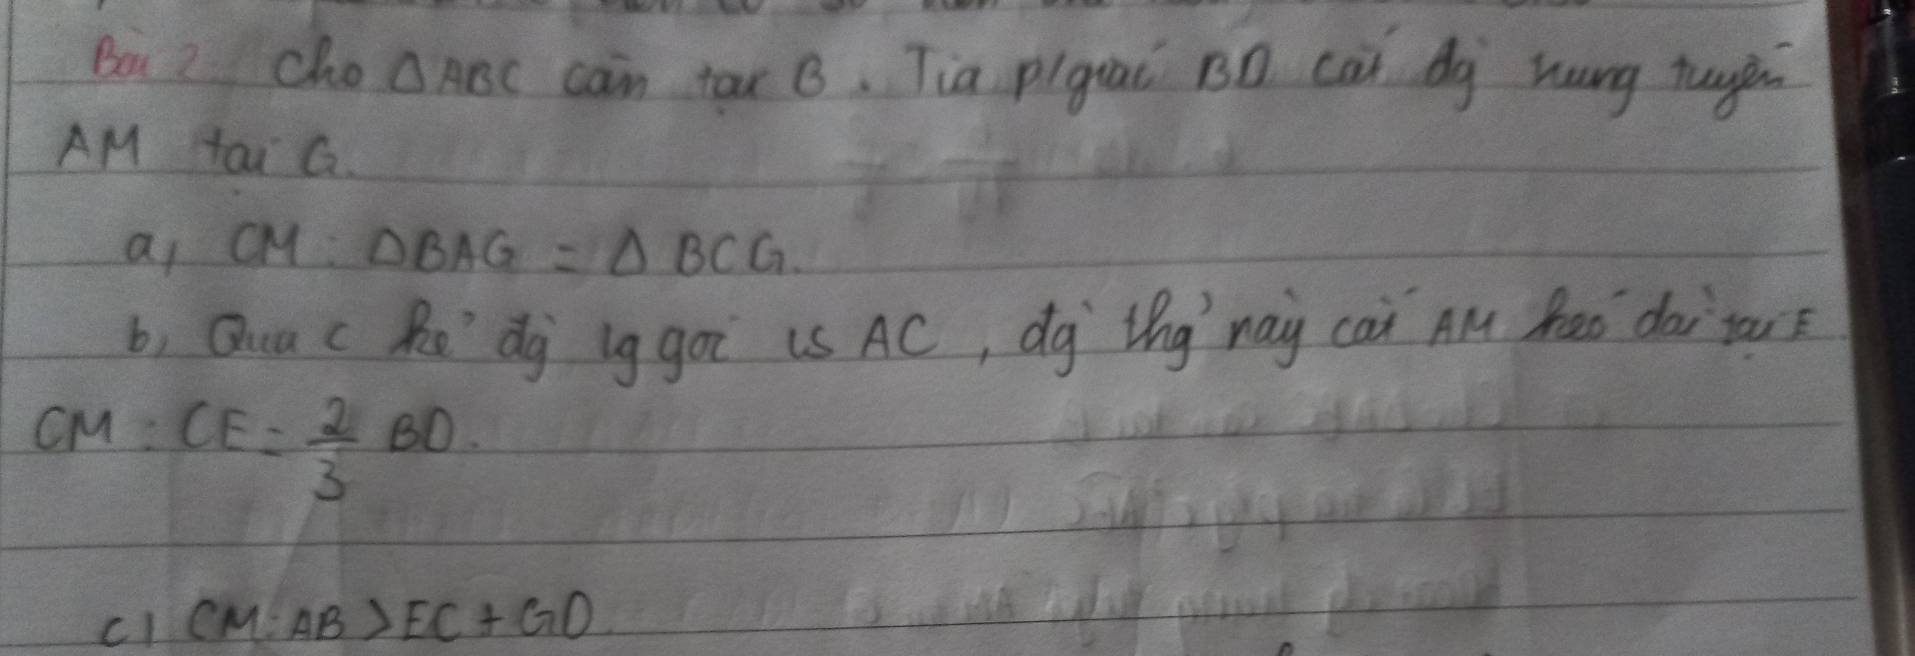 Bài 2. Cho △ABC cân tại B. Tia p/giác BD cắt đg trung tuyến
AM tại G.
a, CM: △BAG = △BCG.
b, Qua C kẻ đg vg góc vs AC, đg thg này cắt AM kéo dài tại E
CM: CE = 2/3 BD.
c, CM: AB > EC + GD